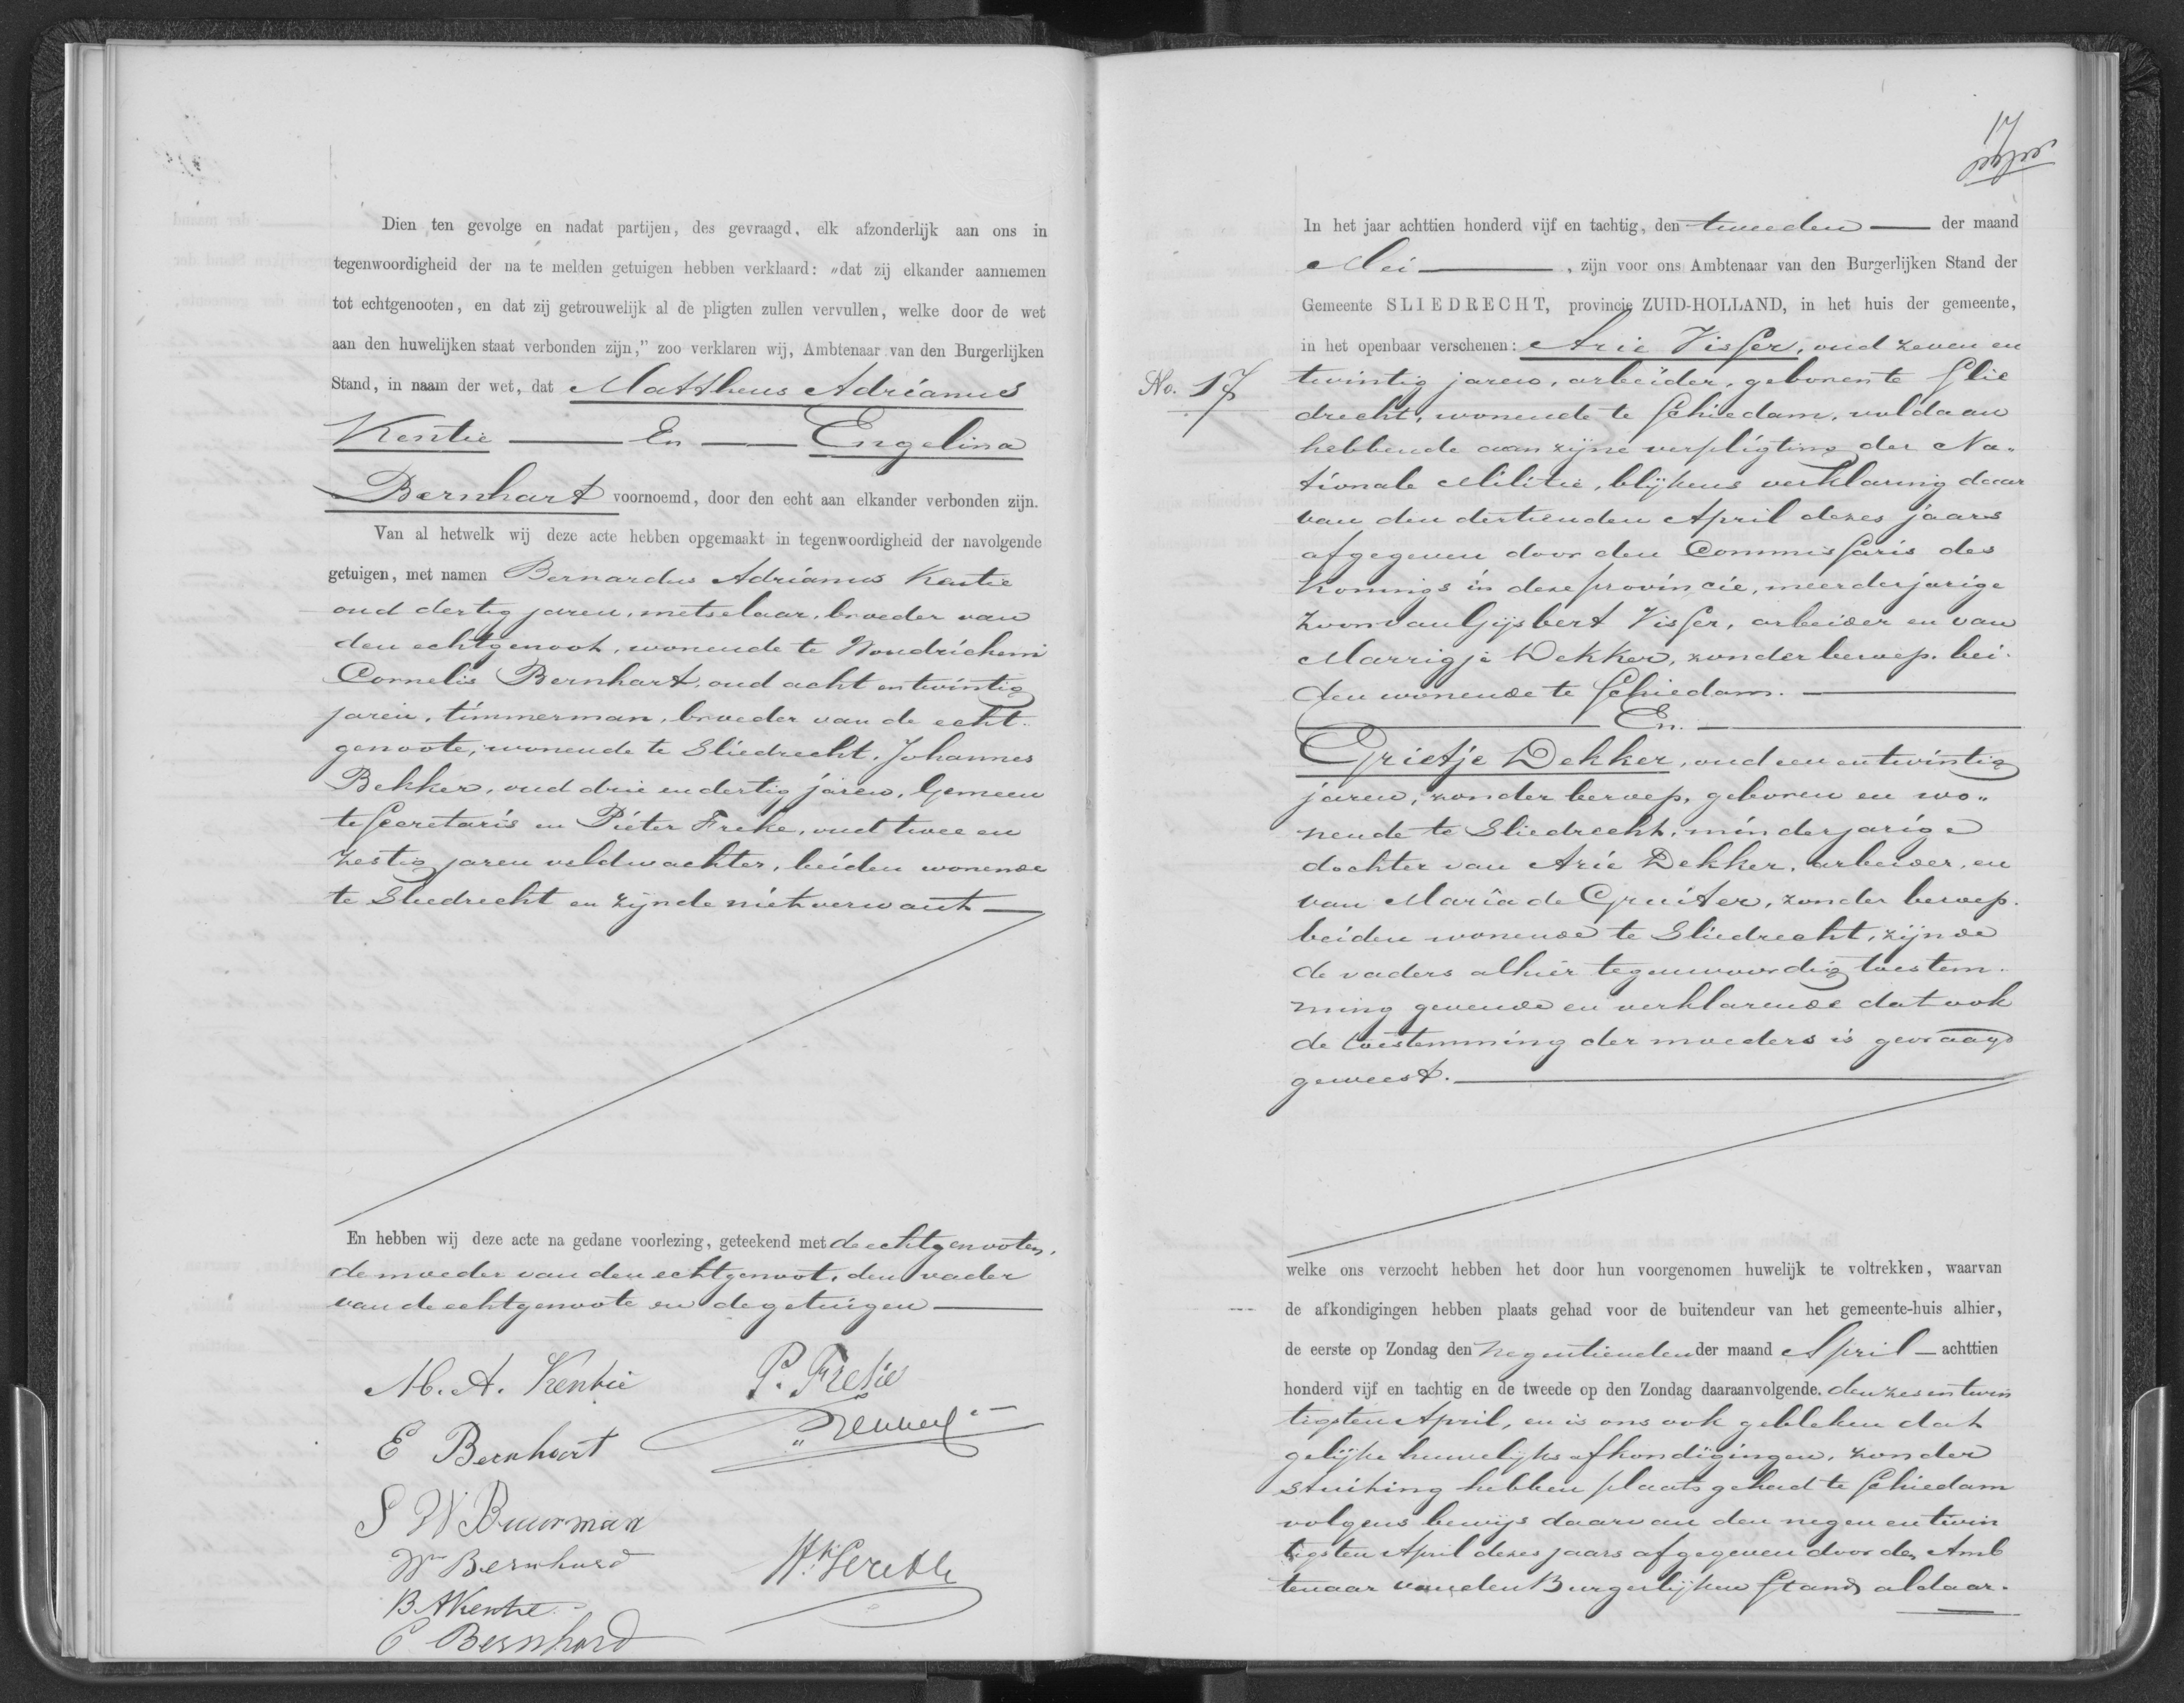 Dien ten gevolge en nadat partijen, des gevraagd, elk afzonderlijk aan ons in
tegenwoordigheid der na te melden getuigen hebben verklaard: „dat zij elkander aannemen
tot echtgenooten, en dat zij getrouwelijk al de pligten zullen vervullen, welke door de wet
aan den huwelijken staat verbonden zijn,” zoo verklaren wij, Ambtenaar van den Burgerlijken
Stand, in naam der wet, dat Mattheus Adrianus
Kentie — En — Engelina
Bernhart voornoemd, door den echt aan elkander verbonden zijn.
Van al hetwelk wij deze acte hebben opgemaakt in tegenwoordigheid der navolgende
getuigen, met namen Bernardus Adrianus Kentie
oud dertig jaren, metselaar, broeder van
den echtgenoot, wonende te Woudrichem
Cornelis Bernhart, oud acht en twintig
jaren, timmerman, broeder van de echt-
genoote, wonende te Sliedrecht, Johannes
Bekker, oud drie en dertig jaren, Gemeen
te Secretaris en Pieter Freke, oud twee en
zestig jaren veldwachter, beiden wonende
te Sliedrecht en zijnde niet verwant —
En hebben wij deze acte na gedane voorlezing, geteekend met de echtgenooten,
de moeder van den echtgenoot, den vader
van de echtgenoote en de getuigen —
M. A. Kentie
E Bernhart
S W Buurman
Wm Bernhard
B A Kentie
C Bernhard
17
In het jaar achttien honderd vijf en tachtig, den tweeden — der maand
Mei —, zijn voor ons Ambtenaar van den Burgerlijken Stand der
Gemeente SLIEDRECHT, provincie ZUID-HOLLAND, in het huis der gemeente,
in het openbaar verschenen: Arie Visser, oud zeven en
No. 17
twintig jaren, arbeider, geboren te Slie
drecht, wonende te Schiedam, voldaan
hebbende aan zijne verpligting der Na„
tionale Militie, blijkens verklaring daar
van den dertienden April dezes jaars
afgegeven door den Commissaris des
Konings in deze provincie, meerderjarige
zoon van Gijsbert Visser, arbeider en van
Marrigje Dekker, zonder beroep, bei-
den wonende te Schiedam. —
— En. —
Grietje Dekker, oud een en twintig
jaren, zonder beroep, geboren en wo„
nende te Sliedrecht, minderjarige
dochter van Arie Dekker, arbeider, en
van Maria de Gruiter, zonder beroep.
beiden wonende te Sliedrecht, zijnde
de vaders alhier tegenwoordig toestem-
ming gevende en verklarende dat ook
de toestemming der moeders is gevraagd
geweest. —
welke ons verzocht hebben het door hun voorgenomen huwelijk te voltrekken, waarvan
de afkondigingen hebben plaats gehad voor de buitendeur van het gemeente-huis alhier,
de eerste op Zondag den negentienden der maand April — achttien
honderd vijf en tachtig en de tweede op den Zondag daaraanvolgende, den zes en twin
tigsten April, en is ons ook gebleken dat
gelijke huwelijks afkondigingen, zonder
stuiting hebben plaats gehad te Schiedam
volgens bewijs daarvan den negen en twin
tigsten April dezes jaars afgegeven door den Amb
tenaar van den Burgerlijken Stand aldaar.